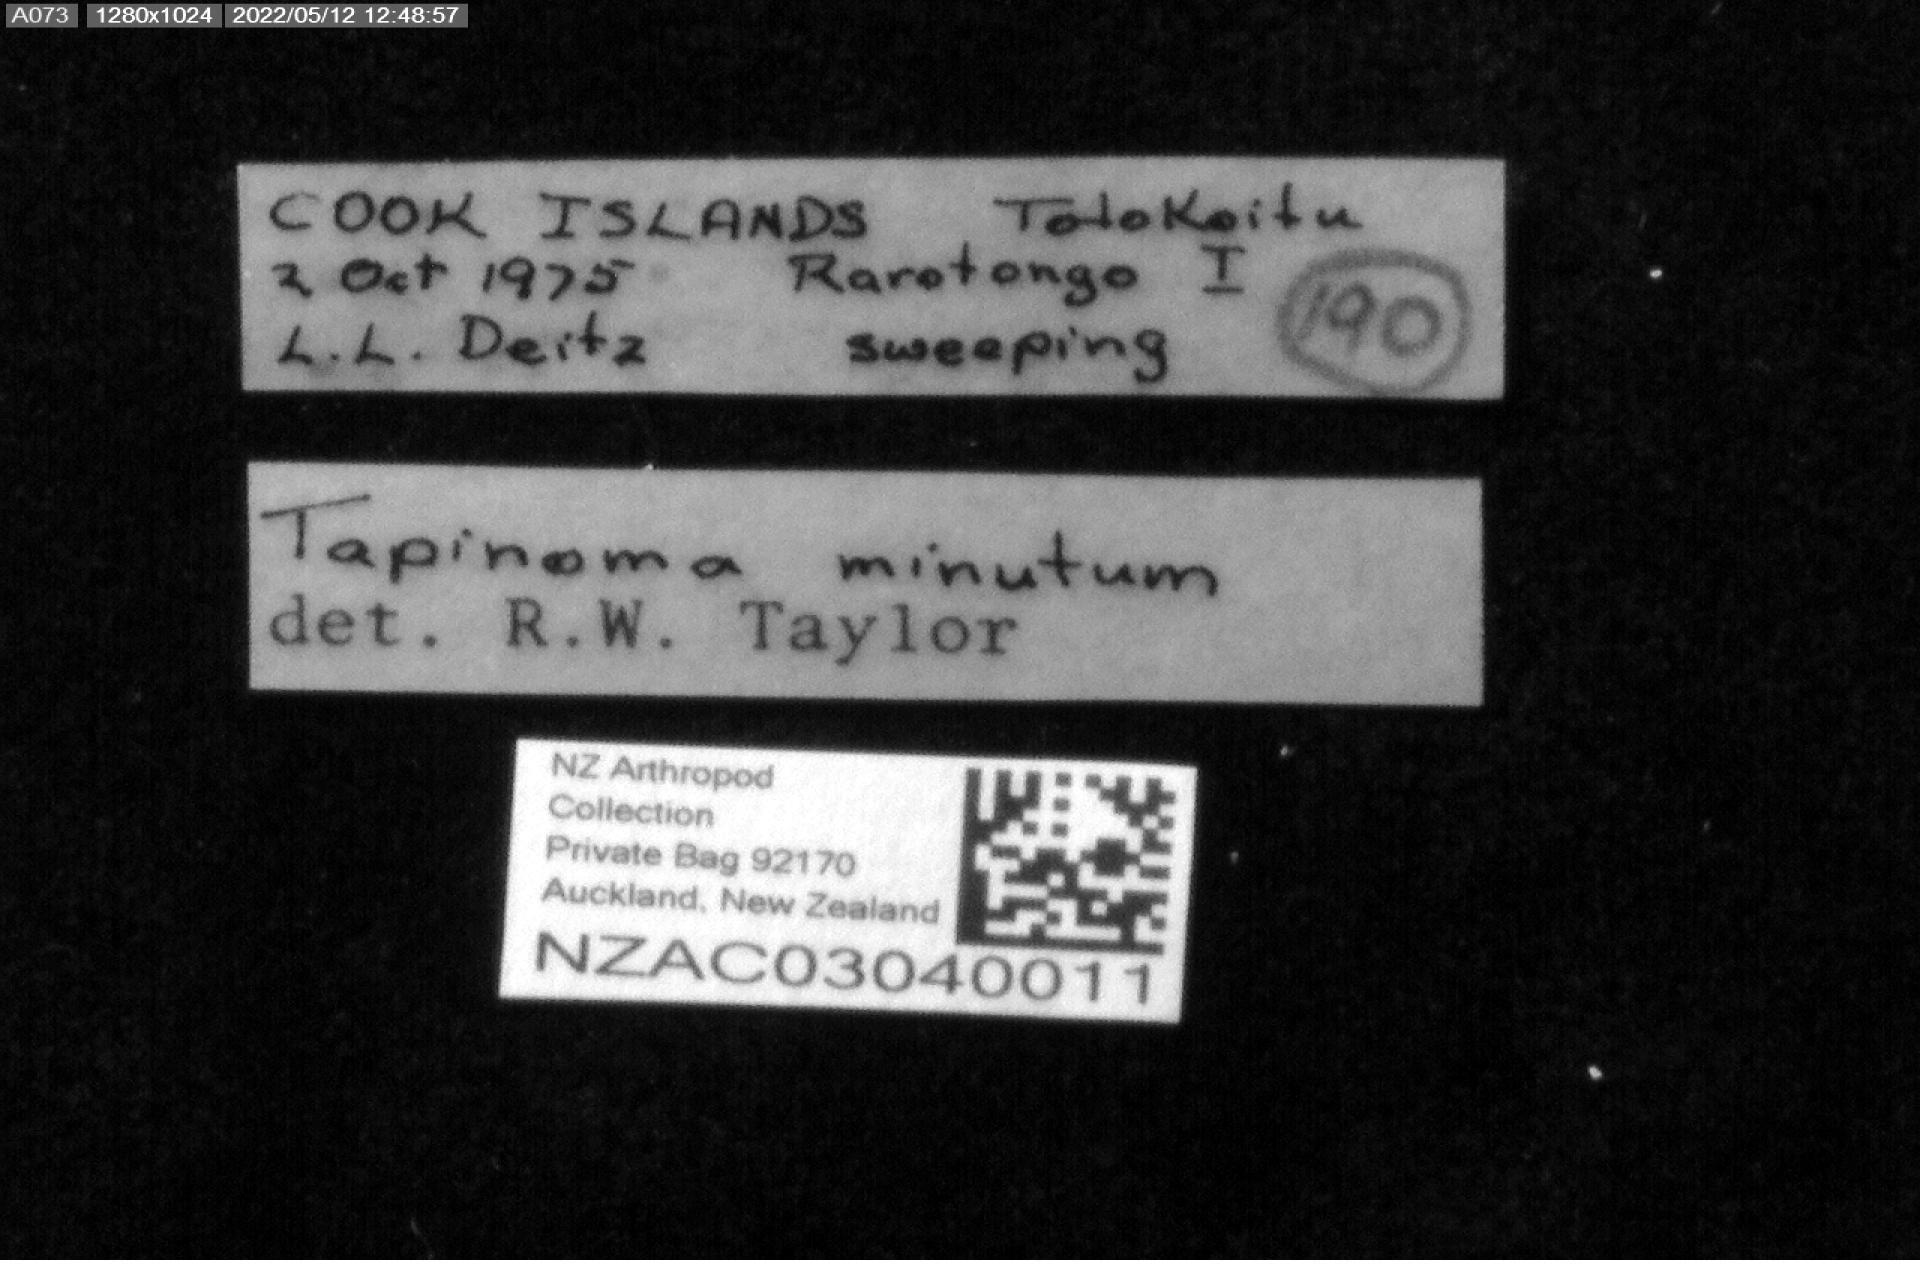 A073 1280x1024 2022/05/12 12:48:57
COOK ISLANDS Totokoitu
2 Oct 1975 Rarotonga I
L.L. Deitz sweeping
190
Tapinoma minutum
det. R.W. Taylor
NZ Arthropod
Collection
Private Bag 92170
Auckland, New Zealand
NZAC03040011